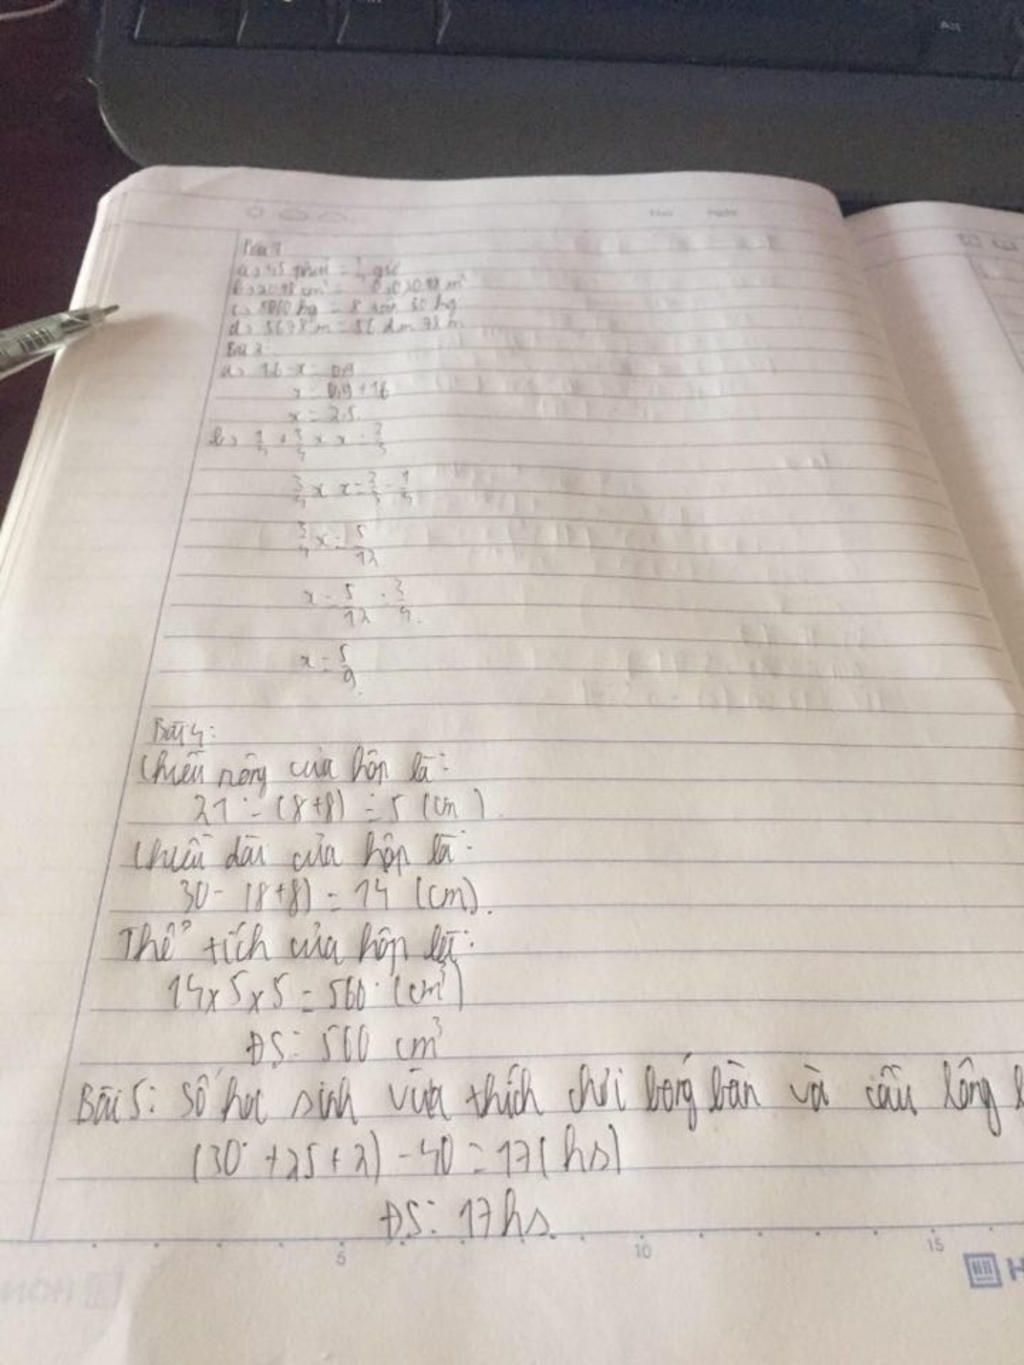 Bài 1
a, 45 phút = giờ
c, 8060 kg = 8 tấn 60 kg
d, 5678 m = 56 dam 78 m
Bài 2:
a, 1,6
x = 0,9 + 1,6
x = 2,5
b, × x =
3/4 × x = 2/3 - 1/4
3/4 x = 5/12
x = 5/12 : 3/4
x = 5/9
Bài 4:
Chiều rộng của hộp là:
21 - (8+8) = 5 (cm)
Chiều dài của hộp là:
30 - (8+8) = 14 (cm).
Thể tích của hộp là:
14 x 5 x 5 = 560 (cm³)
ĐS: 560 cm³
Bài 5: Số học sinh vừa thích chơi bóng bàn và cầu lông
(30 + 25 + 2) - 40 = 17 (hs)
ĐS: 17 hs.
5 10 15
H